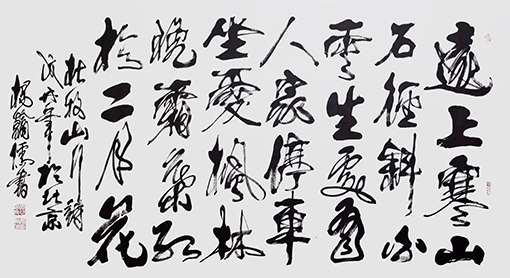 遠上寒山
石徑斜白
雲生處有
人家停車
坐愛楓林
晚霜葉紅
於二月花
杜牧山行詩
戊戌年於北京
楊儒書